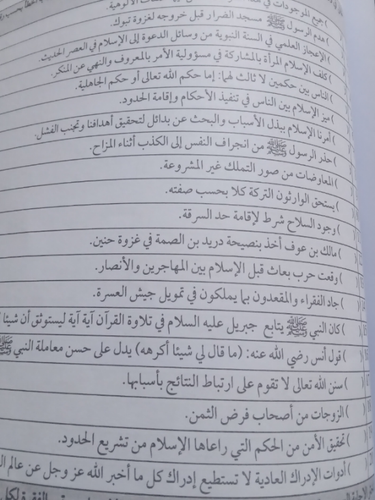 ) جميع الموجودات في
) هدم الرسول ﷺ مسجد الضرار قبل خروجه لغزوة تبوك.
) الإعجاز العلمي في السنة النبوية من وسائل الدعوة إلى الإسلام في العصر الحديث.
) كلف الإسلام المرأة بالمشاركة في مسؤولية الأمر بالمعروف والنهي عن المنكر.
) الناس بين حكمين لا ثالث لهما: إما حكم الله تعالى أو حكم الجاهلية.
) ميز الإسلام بين الناس في تنفيذ الأحكام وإقامة الحدود.
) أمرنا الإسلام ببذل الأسباب والبحث عن بدائل لتحقيق أهدافنا وتجنب الفشل.
) حذر الرسول ﷺ من انجراف النفس إلى الكذب أثناء المزاح.
) المعاوضات من صور التملك غير المشروعة.
) يستحق الوارثون التركة كلا بحسب صفته.
) وجود السلاح شرط لإقامة حد السرقة.
) مالك بن عوف أخذ بنصيحة دريد بن الصمة في غزوة حنين.
) وقعت حرب بعاث قبل الإسلام بين المهاجرين والأنصار.
) جاد الفقراء والمقعدون بما يملكون في تمويل جيش العسرة.
) كان النبي ﷺ يتابع جبريل عليه السلام في تلاوة القرآن آية آية ليستوثق أن شيئا
) قول أنس رضي الله عنه: (ما قال لي شيئا أكرهه) يدل على حسن معاملة النبي ﷺ
) سنن الله تعالى لا تقوم على ارتباط النتائج بأسبابها.
) الزوجات من أصحاب فرض الثمن.
) تحقيق الأمن من الحكم التي راعاها الإسلام من تشريع الحدود.
) أدوات الإدراك العادية لا تستطيع إدراك كل ما أخبر الله عز وجل عن عالم